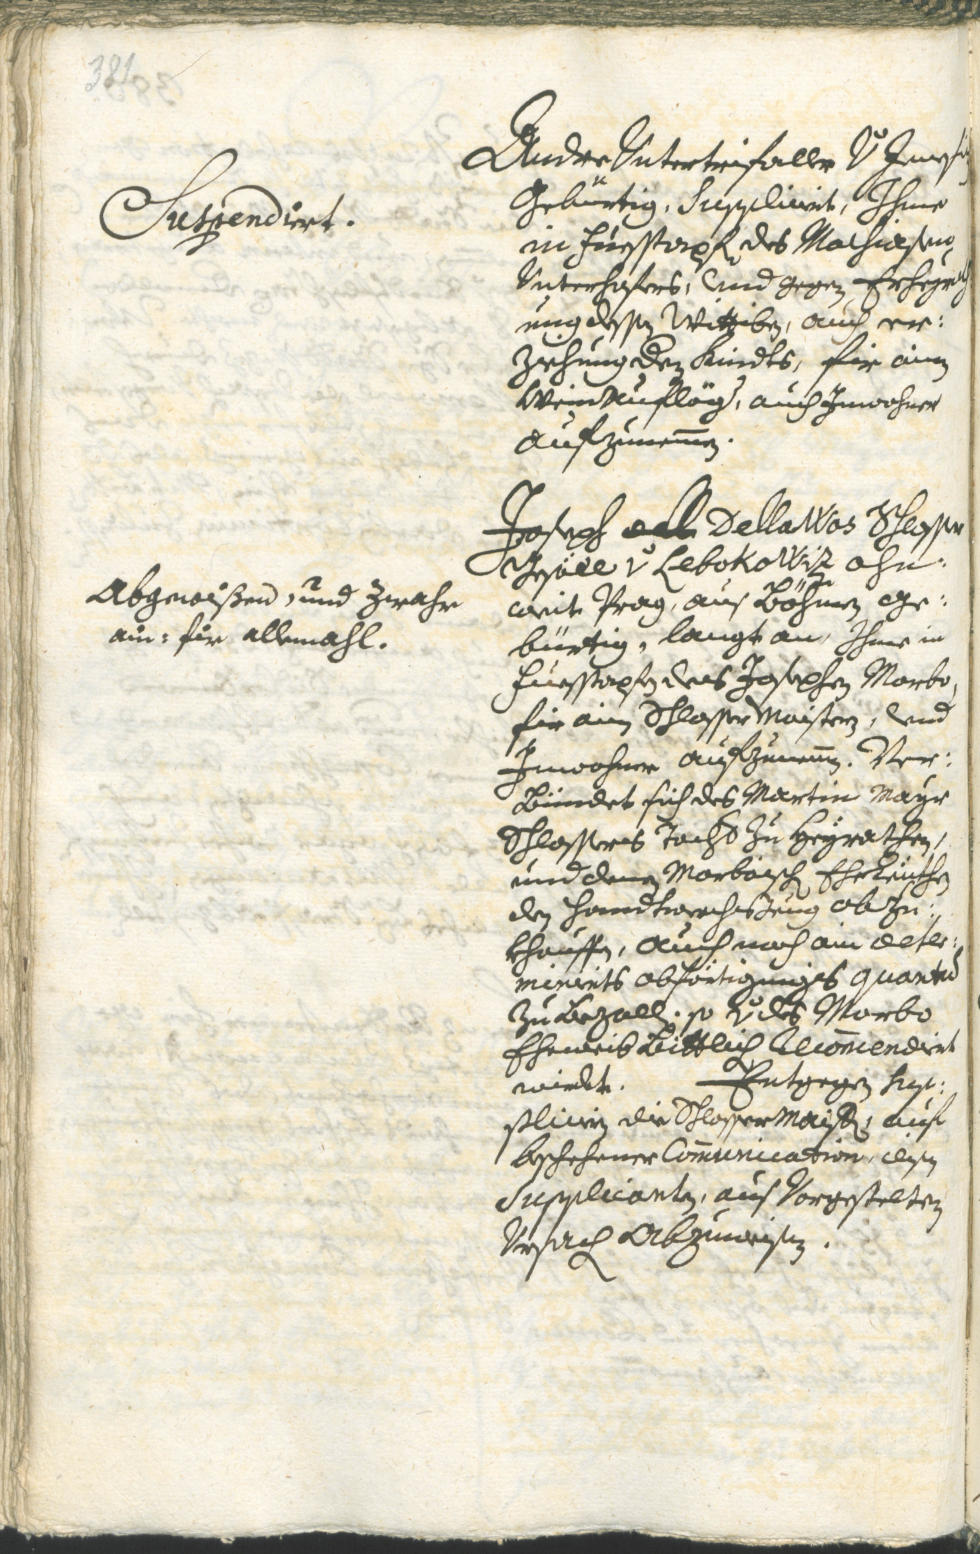 381
Suspendiert.
Andre Untertrifaller v
Gebürtig, Supplicirt, Ihme
in fuesstapf des Mathiasen
Unterhofers, und gegen
ung dessen Wittiben, auch er:
ziehung der Kindts, für ain
Weinaufläg, auch Inwohner
aufzunemen.
Abgewißen, und Zwahr
ain: für allemahl.
Joseph Dellawos Schlosser
Gesöll v Lebokowiz ohn:
weit Prag, aus Böhmen ge:
bürtig, langt an, Ihme in
fuesstapfen des Josephen Marbo,
für ain Schlosser Maistern, und
Inwohner aufzunemen. Ver:
bündet sich des Martin Mayr
Schlossers Tocht zu Heyrathen,
und denen Marboisch Eheleuthen
den Handtwerchszeug abzu:
khauffen, auch noch ain deter:
minirts abförtigungs quantu
zu bezall. so v des Marbo
Eheweib Bittlich Recomendiert
wirdt. Entgegen Sup:
plicirn die Schlosser Maister, auf
beschehener Communication, disen
Supplicanten, aus Vorgestelten
Ursach Abzuweisen.